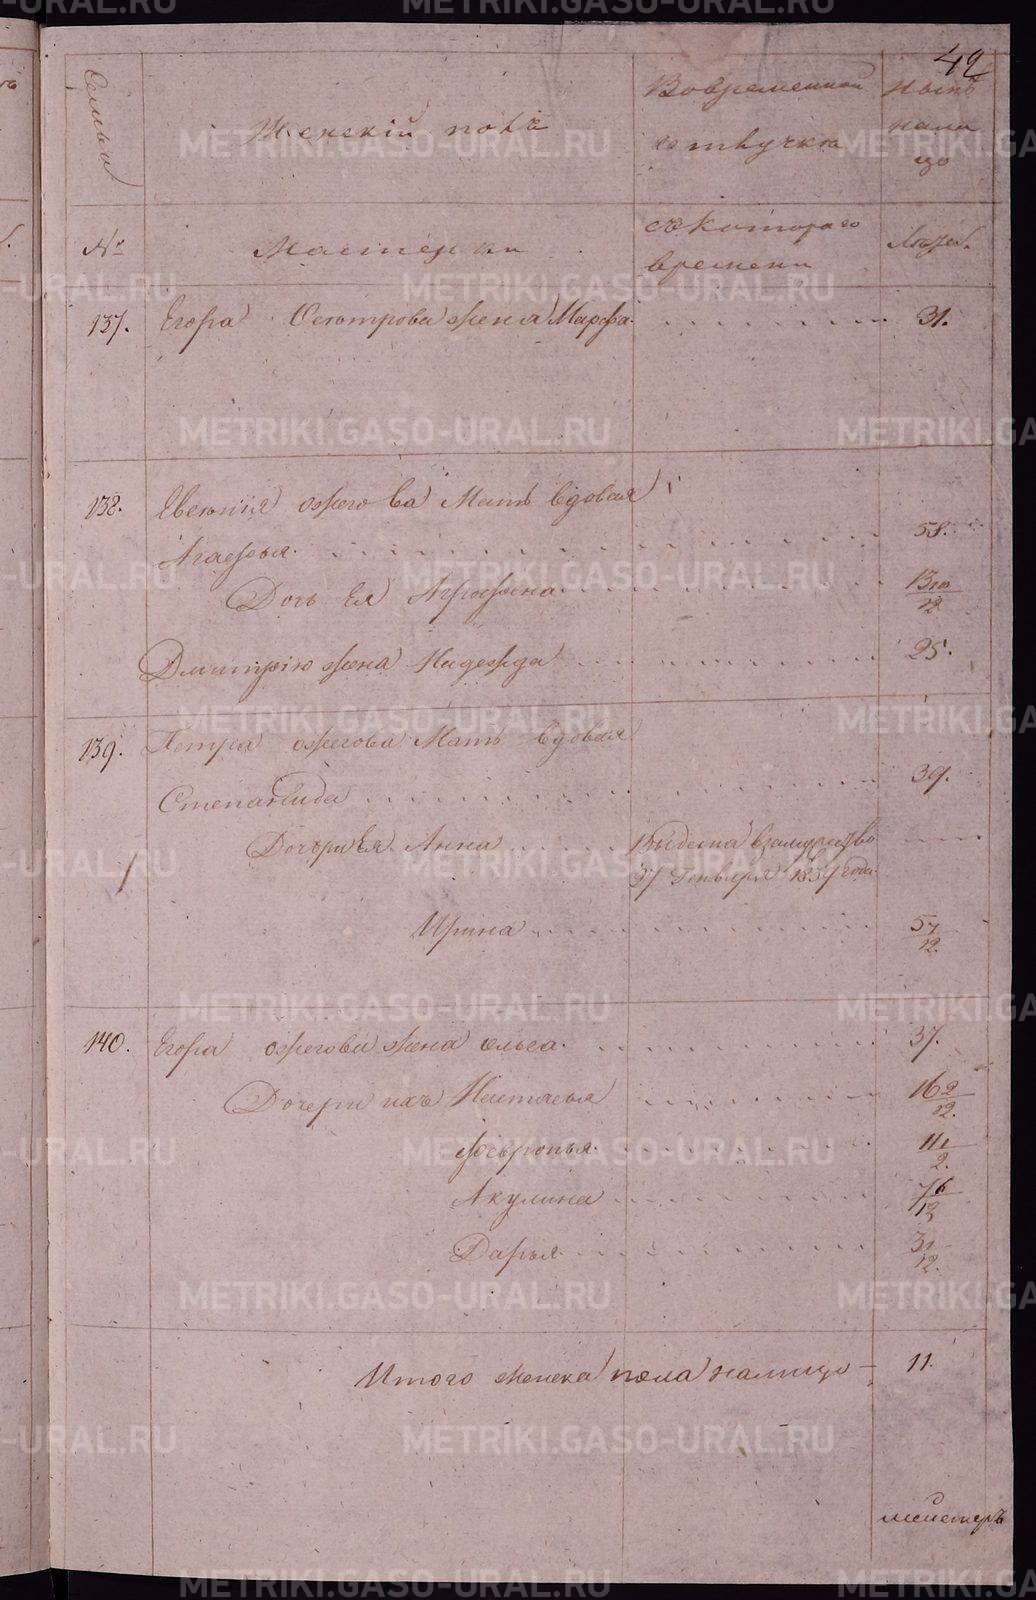 42
Семьи
Женскій полъ
Во временной
отлучкѣ
Нынѣ
нали
цо
№
Мастерки
съ котораго
времени
Лѣта.
137. Егора Осотрова жена Марфа 31.
138. Евсенія ожегова Мать вдовая
Агафья 58.
Дочь Ея Агрофена 13 10/12
Дмитрію жена Надежда 25.
139. Петра ожегова Мать вдовая
Степанида 39.
Дочери Ея Анна Выдена взамужство
27 Генваря 1859 года
Ирина 5 7/12.
140. Егора ожегова жена ольга. 37.
Дочери ихъ Настасья 16 2/12.
Февронья. 11 1/2.
Акулина 7 6/12
Дарья 3 1/12.
Итого женска пола налицо 11.
METRIKI.GASO-URAL.RU